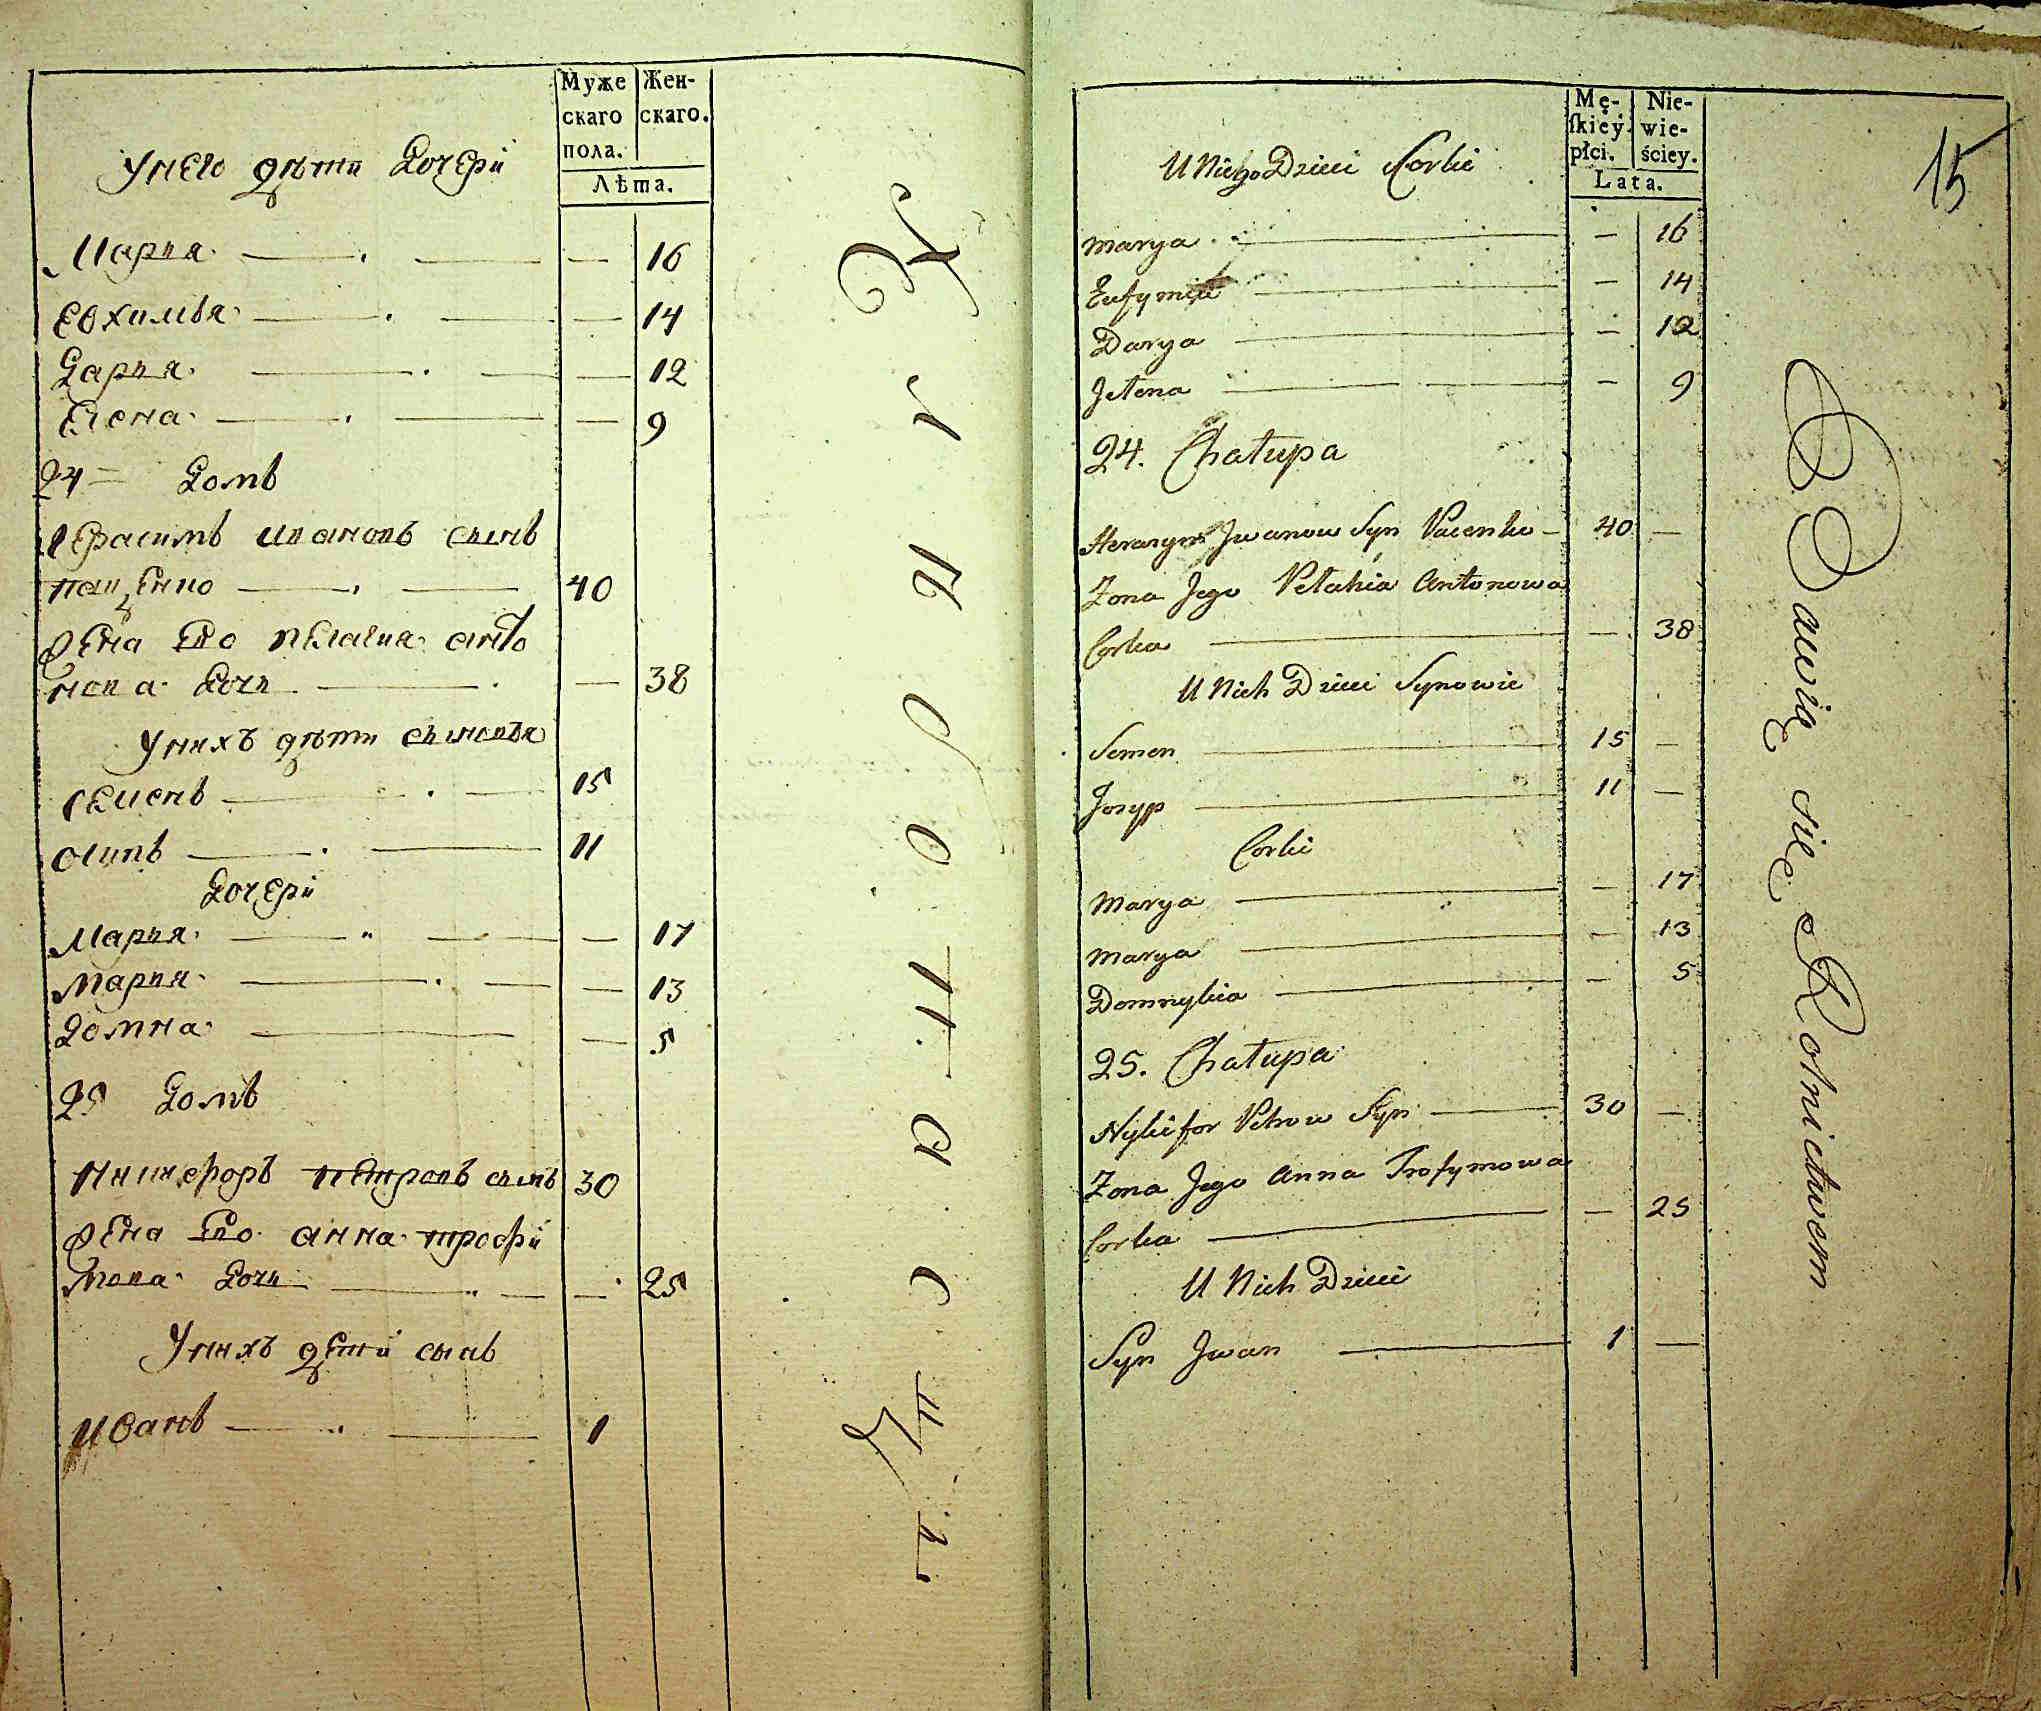 Муже
скаго
пола.
Жен-
скаго.
Лѣта.
Унего дѣти дочери
Мария — 16
Евхимья — 14
Дария — 12
Елена — 9
24 Домъ
Герасимъ ивановъ сынъ
паценко — 40
жена Его пелагия анто
нова дочь — 38
Унихъ дѣти сыновья
Семенъ — 15
Осипъ — 11
Дочери
Мария — 17
Мария — 13
Домна — 5
25 Домъ
Никифоръ петровъ сынъ 30
жена Его анна трофи
мова дочь — 25
Унихъ дети сынъ
Иванъ — 1
Mę-
ſkiéy
płci.
Nie-
wie-
ściey.
Lata.
15
U Niego Dzieci Corki
Marya — 16
Eufymia — 14
Darya — 12
Jelena — 9
24. Chałupa
Herasym Jwanow Syn Pacenko — 40 —
Zona Jego Pelahia Antonowa
Corka — 38
U Nich Dzieci Synowie
Semen 15 —
Josyp 11 —
Corki
Marya — 17
Marya — 13
Domnykia — 5
25. Chałupa
Nykifor Petrow Syn 30 —
Zona Jego Anna Trofymowa
Corka — 25
U Nich Dzieci
Syn Jwan 1 —
Bawią się Rolnictwem